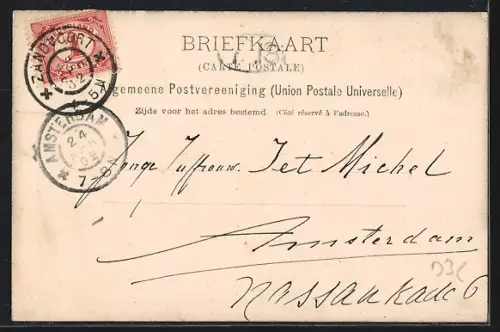 BRIEFKAART
(CARTE POSTALE)
Algemeene Postvereeniging (Union Postale Universelle)
Zijde voor het adres bestemd (Côté réservé à l'adresse.)
ZANDVOORT
AMSTERDAM
24
7-8
Jonge Juffrouw Jet Michel
Amsterdam
Nassaukade 6